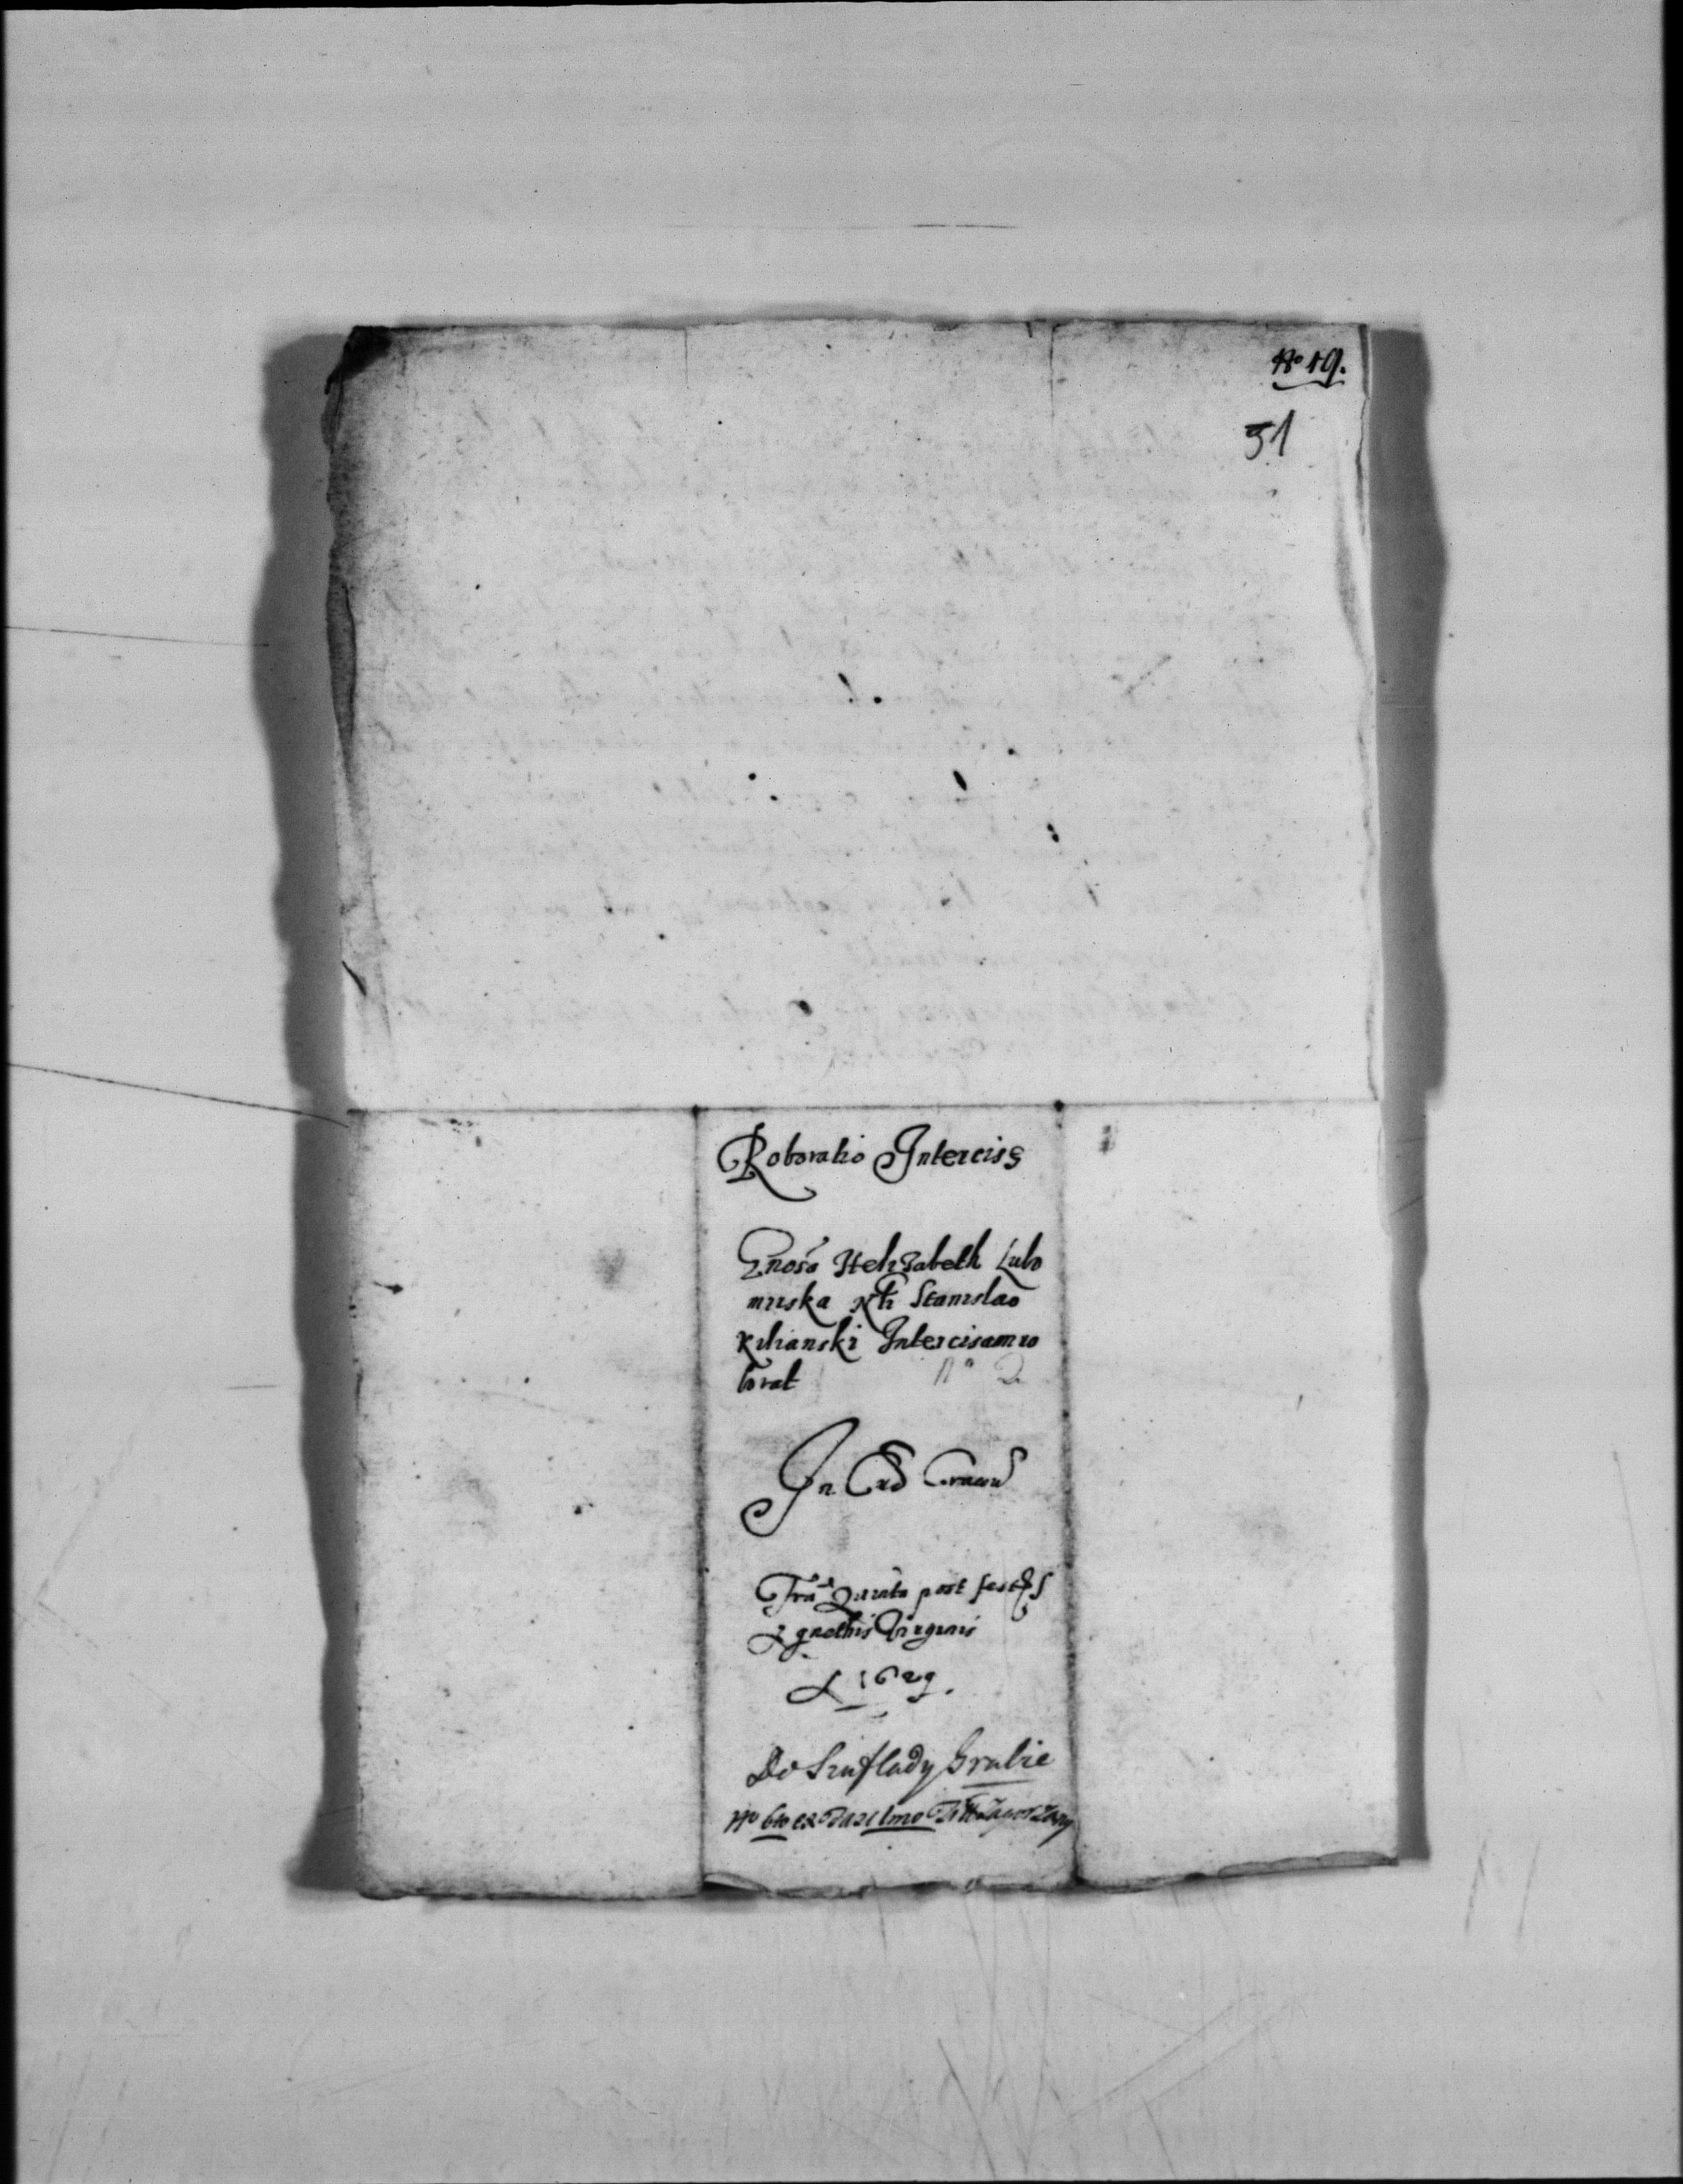 No 19.
51
Roboratio Intercisę
Gnosa Helizabeth Lubo
mirska Nli Stanislao
Kilianski Intercisam ro
borat
No 2
In Cas Cracou
Fria Quarta post festu S
Agnethis Virginis
A 1629.
Do Szuflady Grabie
No 6to ex